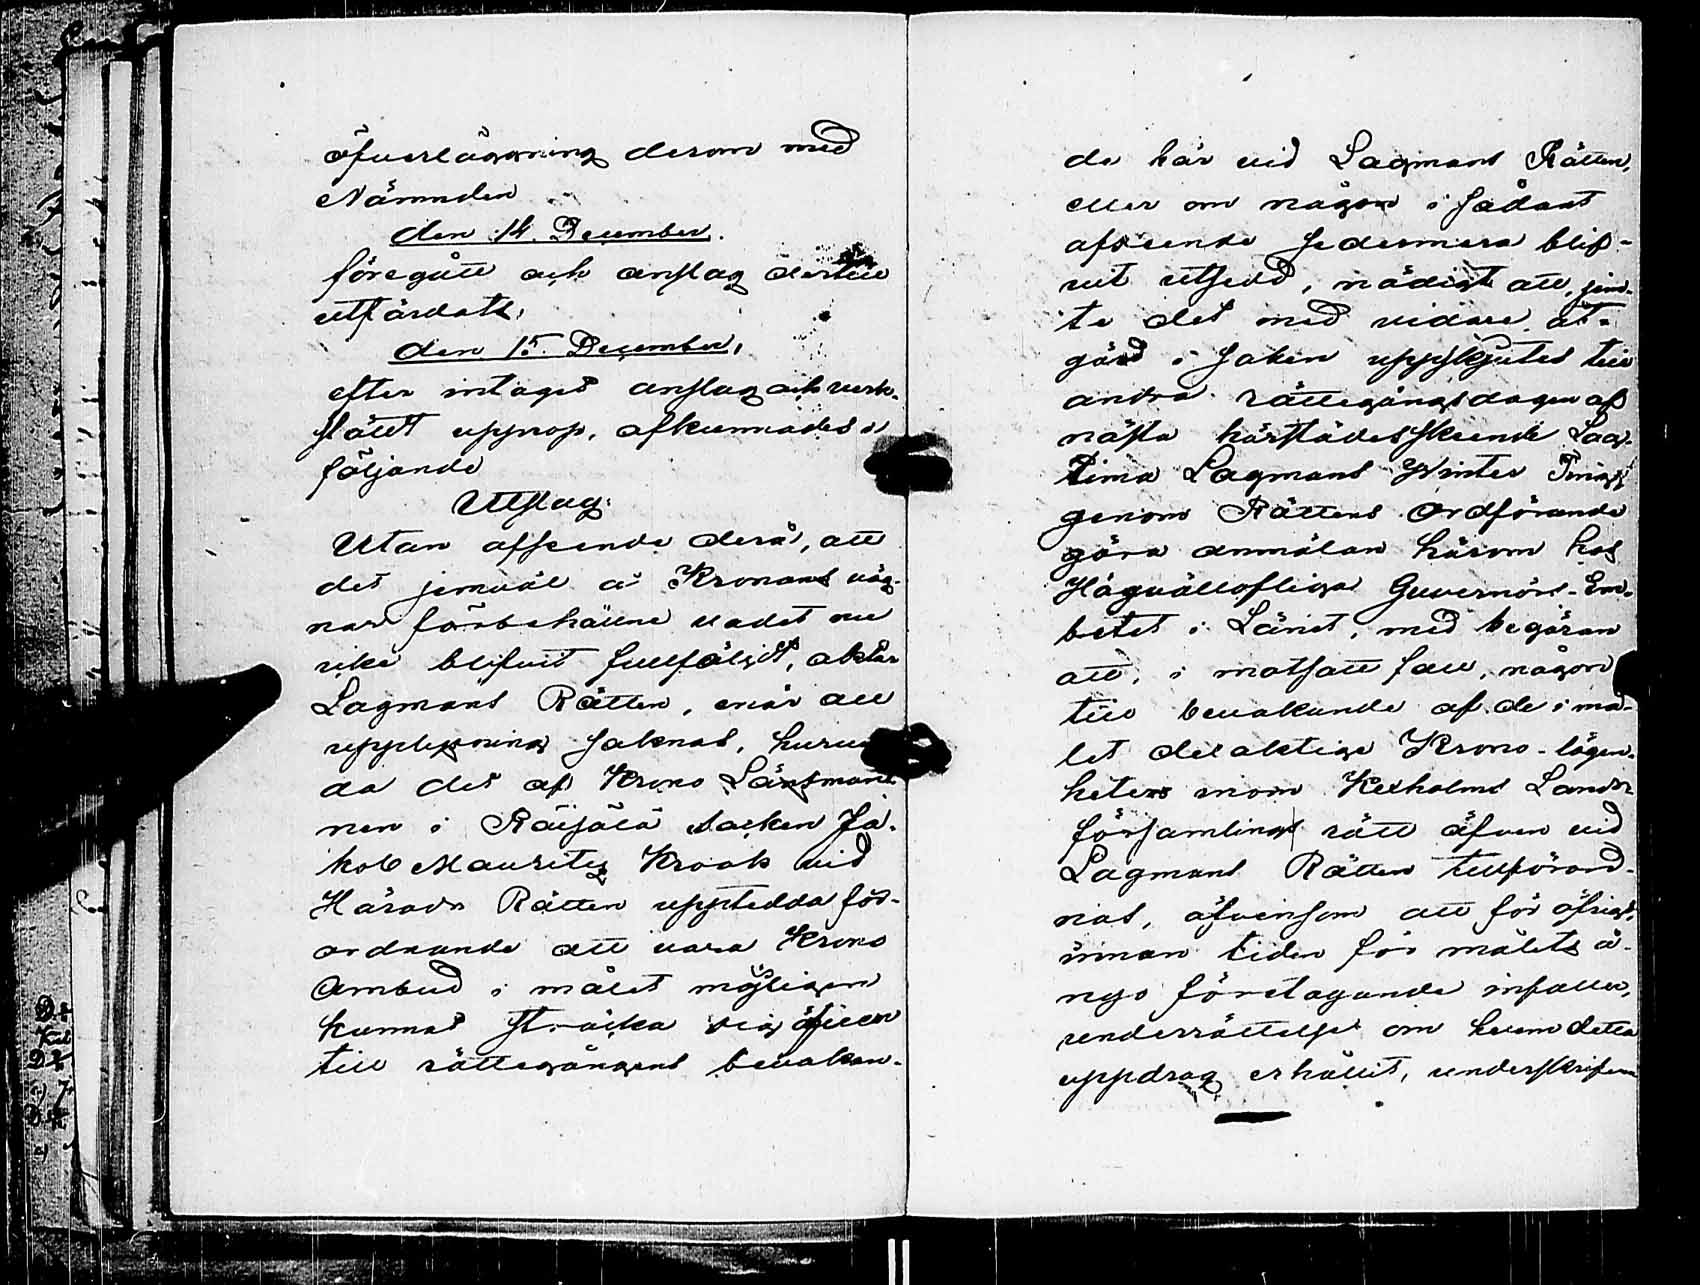 öfverläggning derom med
Nämnden
den 14. December.
föregått och anslag dertill
utfärdats,
den 15. December,
efter intaget anslag och verk-
stäldt upprop, afkunnades
följande
Utslag:
Utan afseende derå, att
det jemväl å Kronans väg-
nar förbehållne vadet nu
icke blifvit fullföljdt, aktar
Lagmans Rätten, enär all
upplysning saknas, huruvi-
da det af Krono Länsman-
nen i Räisälä Socken Ja-
kob Mauritz Krook vid
Härads Rätten upptedda för-
ordnande att vara Krono
Ombud i målet möjligen
kunnat sträcka sig äfven
till rättegångens bevakan-
de här vid Lagmans Rätten,
eller om någon i sådant
afseende sedermera blif-
vit utsedd, nödigt att, jem-
te det med vidare åt-
gärd i saken uppskjutes till
andra rättegångsdagen af
nästa härstädes skeende Lag-
tima Lagmans Winter Ting
genom Rättens Ordförande
göra anmälan härom hos
Högvällofliga Guvernörs-Em-
betet i Länet, med begäran
att, i motsatt fall, någon
till bevakande af de i må-
let delaktige Krono-lägen-
heters inom Kexholms Lands
församlings rätt äfven vid
Lagmans Rätten tillförord-
nas, äfvensom att för öfrigt,
innan tiden för målets å-
nyo företagande infaller,
underrättelse om hvem detta
uppdrag erhållit, underskrifven